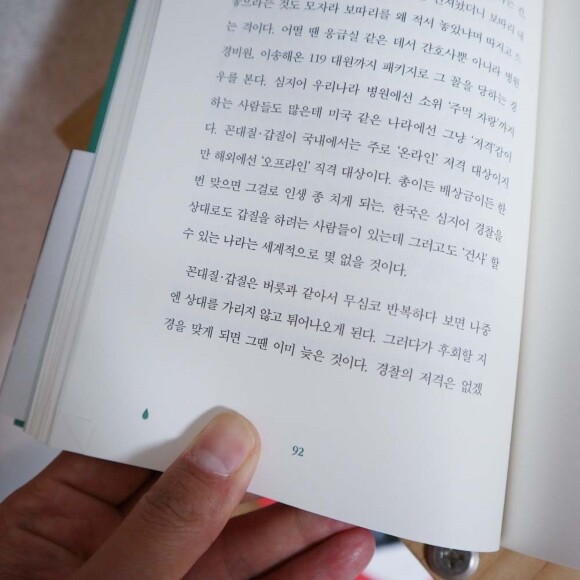 놓으라는 것도 모자라 보따리를 왜 적서 놓았냐며 따지고 드
는 격이다. 어떨 땐 응급실 같은 데서 간호사뿐 아니라 병원
경비원, 이송해온 119 대원까지 패키지로 그 꼴을 당하는 경
우를 본다. 심지어 우리나라 병원에선 소위 ‘주먹 자랑’까지
하는 사람들도 많은데 미국 같은 나라에선 그냥 ‘저격’감이
다. 꼰대질·갑질이 국내에서는 주로 ‘온라인’ 저격 대상이지
만 해외에선 ‘오프라인’ 직격 대상이다. 총이든 배상금이든 한
번 맞으면 그걸로 인생 종 치게 되는. 한국은 심지어 경찰을
상대로도 갑질을 하려는 사람들이 있는데 그러고도 ‘건사’할
수 있는 나라는 세계적으로 몇 없을 것이다.
꼰대질·갑질은 버릇과 같아서 무심코 반복하다 보면 나중
엔 상대를 가리지 않고 튀어나오게 된다. 그러다가 후회할 지
경을 맞게 되면 그땐 이미 늦은 것이다. 경찰의 저격은 없겠
92